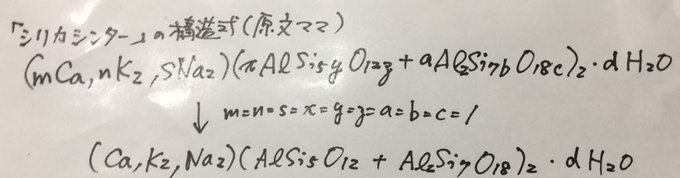 「シリカシンター」の構造式(原文ママ)
(mCa, nK₂, sNa₂)(xAlSi₅yO₁₂z + aAl₂Si₇bO₁₈c)₂・dH₂O
↓ m=n=s=x=y=z=a=b=c=1
(Ca, K₂, Na₂)(AlSi₅O₁₂ + Al₂Si₇O₁₈)₂・dH₂O